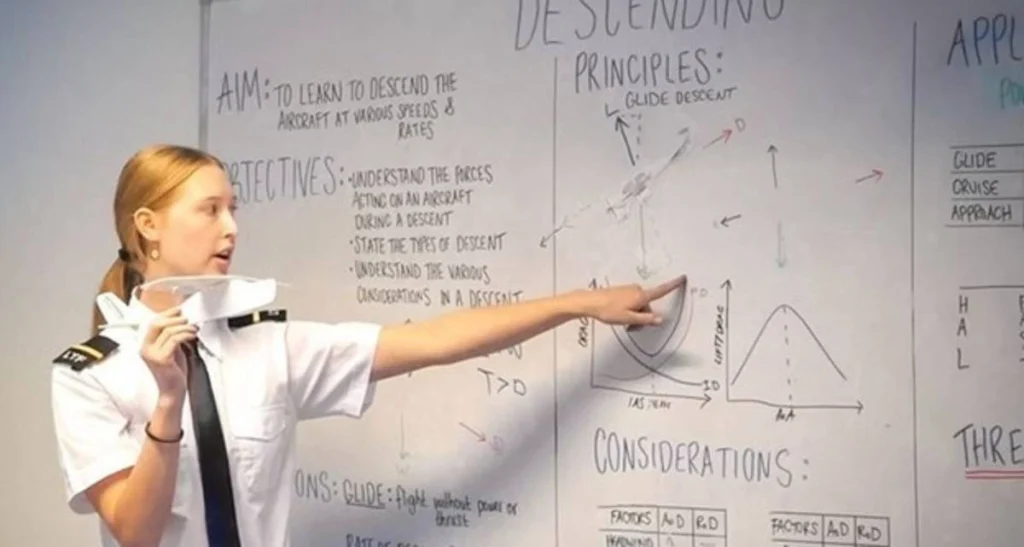 DESCENDING
AIM: TO LEARN TO DESCEND THE
AIRCRAFT AT VARIOUS SPEEDS &
RATES
OBJECTIVES: •UNDERSTAND THE FORCES
ACTING ON AN AIRCRAFT
DURING A DESCENT
•STATE THE TYPES OF DESCENT
•UNDERSTAND THE VARIOUS
CONSIDERATIONS IN A DESCENT
T>D
D
ONS: GLIDE: flight without power or
thrust
PRINCIPLES:
GLIDE DESCENT
L
D
PD
ID
IAS
LIFT/DRAG
AoA
CONSIDERATIONS:
FACTORS AoD RoD
HEADWIND
FACTORS AoD RoD
APPL
GLIDE
CRUISE
APPROACH
H
A
L
THRE
LTF